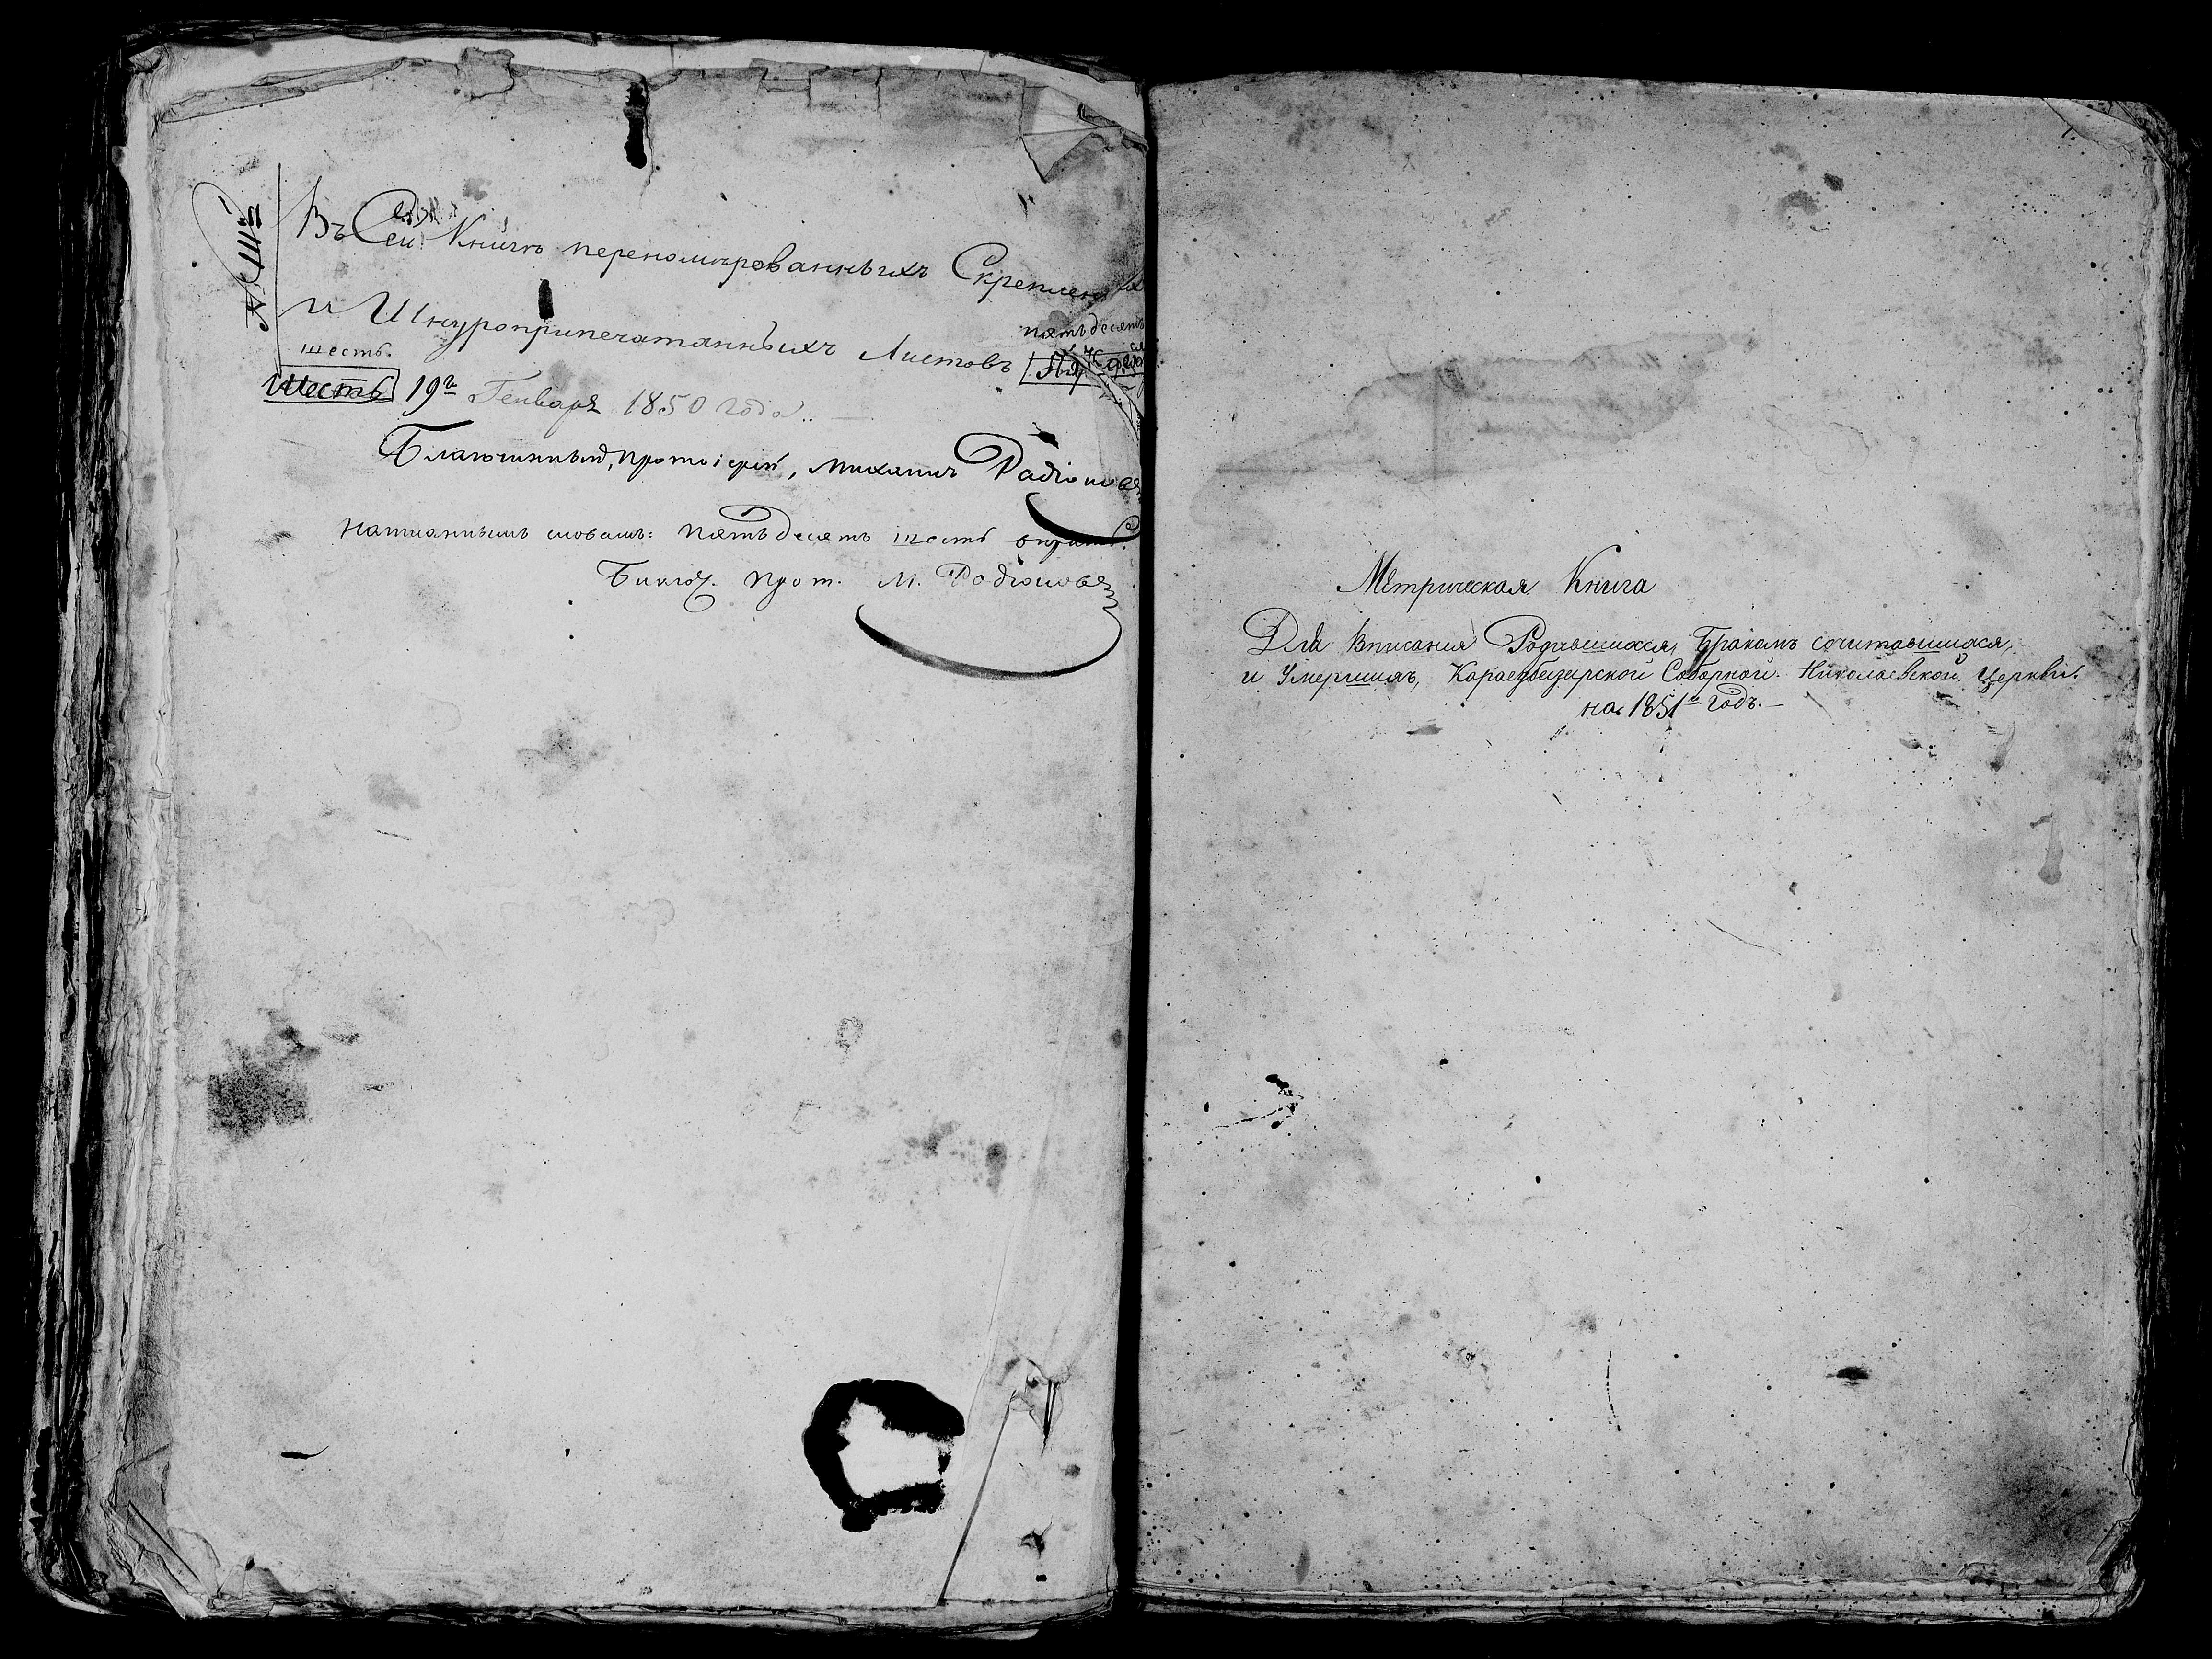 Въ Сей Книгѣ перенолырованныхъ Скрепленныхъ
и Шнуроприпечатанныхъ Листовъ пятьдесятъ
шесть.
Шесть 19го Генваря 1850 года.
Благочинный, протоіерей, Михаилъ Радіоновъ
пятьдесятъ шесть
Благоч. прот. М. Радіоновъ
Метрическая Книга
Для Вписания Родившихся, Бракомъ сочитавшихся,
и Умершихъ, Соборной Николаевской Церкви.
на 1851й годъ.